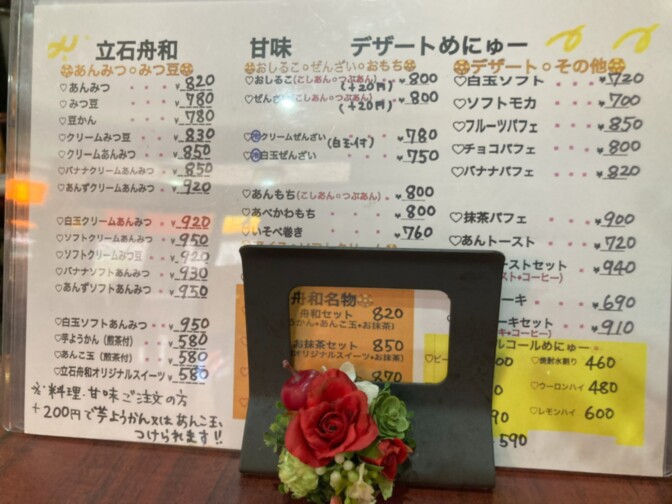 立石舟和 甘味 デザートめにゅー
あんみつ○みつ豆
♡あんみつ ・・・ ¥820
♡みつ豆 ・・・ ¥780
♡豆かん ・・・ ¥780
♡クリームみつ豆 ・ ¥830
♡クリームあんみつ ・ ¥850
♡バナナクリームあんみつ ・ ¥850
♡あんずクリームあんみつ ・ ¥920
♡白玉クリームあんみつ ・ ¥920
♡ソフトクリームあんみつ ・ ¥950
♡ソフトクリームみつ豆 ・ ¥920
♡バナナソフトあんみつ ・ ¥930
♡あんずソフトあんみつ ・ ¥950
♡白玉ソフトあんみつ ・・ ¥950
♡芋ようかん(煎茶付) ・ ¥580
♡あんこ玉(煎茶付) ・ ¥580
♡立石舟和オリジナルスイーツ ・ ¥580
※料理・甘味ご注文の方
+200円で芋ようかん又はあんこ玉
つけられます!!
おしるこ○ぜんざい○おもち
♡おしるこ(こしあん○つぶあん) ¥800
(+20円)
♡ぜんざい(こしあん○つぶあん) ¥800
(+20円)
♡クリームぜんざい (白玉付) ¥780
♡白玉ぜんざい ・・・ ¥750
♡あんもち(こしあん○つぶあん) ¥800
♡あべかわもち ・・・ ¥800
♡いそべ巻き ・・・ ¥760
舟和名物
舟和セット 820
かん+あんこ玉+お抹茶)
お抹茶 850
オリジナルスイーツ+お抹茶)
870
デザート○その他
♡白玉ソフト ・・・ ¥720
♡ソフトモカ ・・・ ¥700
♡フルーツパフェ ・・ ¥850
♡チョコパフェ ・・ ¥800
♡バナナパフェ ・・ ¥820
♡抹茶パフェ ・・・ ¥900
♡あんトースト ・・ ¥720
ーストセット ¥940
スト+コーヒー)
ーキ ・・・ ¥690
ーキセット ・ ¥910
+コーヒー)
ルコールめにゅー
♡ビー
♡焼酎水割り 460
♡ウーロンハイ 480
♡レモンハイ 600
590